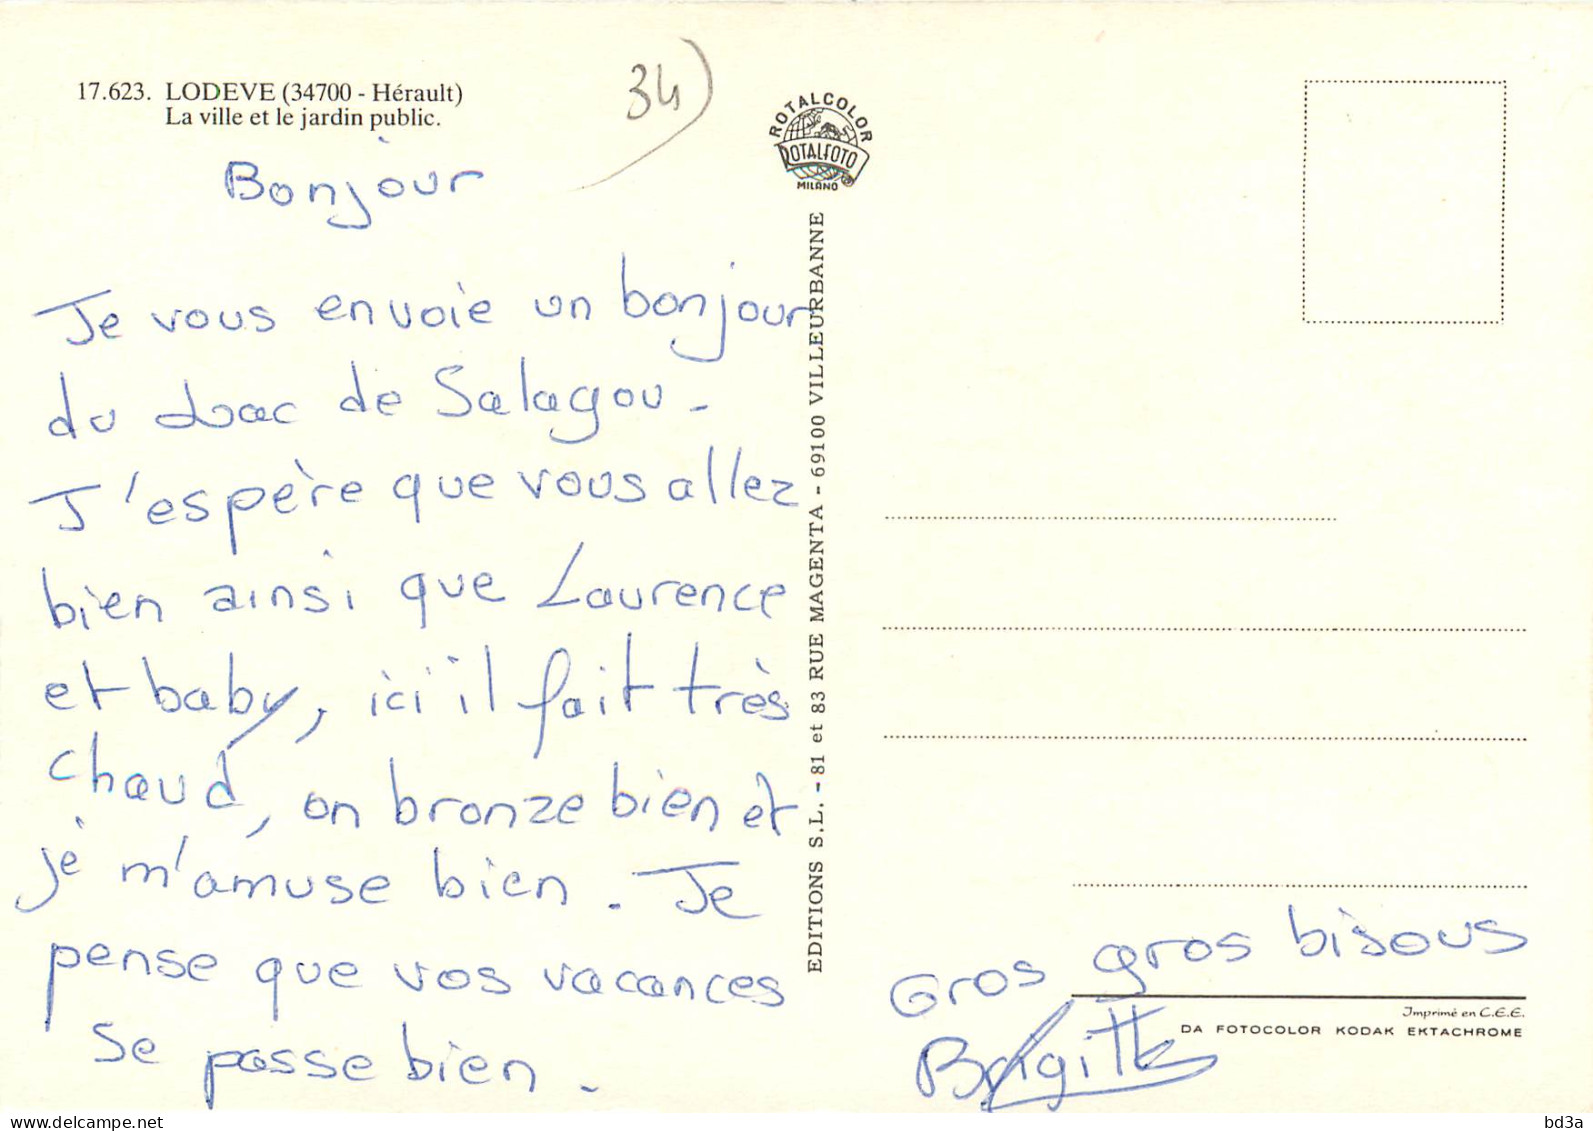 17.623. LODEVE (34700 - Hérault)
La ville et le jardin public.
34
Bonjour
Je vous envoie un bonjour
du Lac de Salagou.
J'espère que vous allez
bien ainsi que Laurence
et baby, ici il fait très
chaud, on bronze bien et
je m'amuse bien. Je
pense que vos vacances
se passe bien.
ROTALCOLOR
ROTALFOTO
MILANO
EDITIONS S.L. - 81 et 83 RUE MAGENTA - 69100 VILLEURBANNE
Gros gros bisous
Brigitte
Imprimé en C.E.E.
DA FOTOCOLOR KODAK EKTACHROME
delcampe.net
bd3a